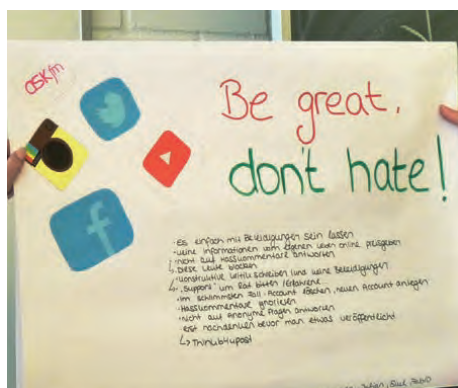 ask fm
Be great,
don't hate!
- Es einfach mit Beleidigungen sein lassen
- keine Informationen vom eigenen Leben online preisgeben
- nicht auf Hasskommentare antworten
↳ Diese Leute blocken
- konstruktive Kritik schreiben und keine Beleidigungen
↳ "Support" um Rat bitten / Erfahrene
- im schlimmsten Fall: Account löschen, neuen Account anlegen
- Hasskommentare ignorieren
- nicht auf anonyme Fragen antworten
- erst nachdenken bevor man etwas veröffentlicht
↳ Thinkb4upost